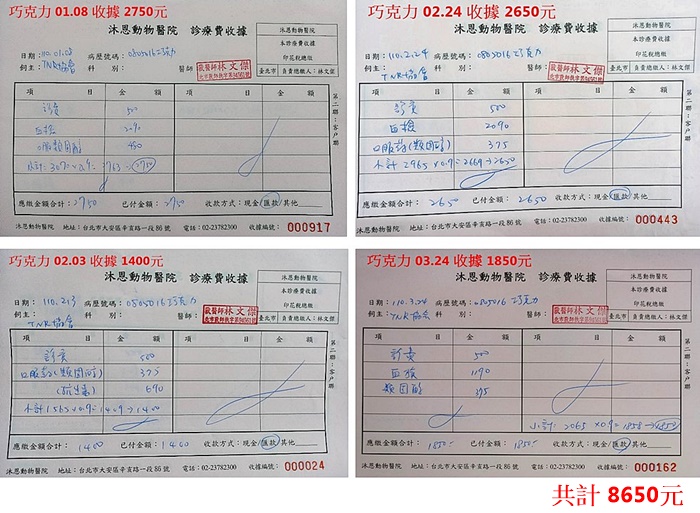 巧克力 01.08 收據 2750元
沐恩動物醫院 診療費收據
沐恩動物醫院
本診療費收據
印花稅總繳
臺北市 負責總繳人:林文傑
日期:110.01.08 病歷號碼:0805016巧克力
飼主:TNR協會 科 別: 醫師:
獸醫師林文傑
項 目 金 額 項 目 金 額
診資 500
血檢 2090
口服類固醇 480
應繳金額合計:2750 已付金額:2750 收款方式:現金/匯款/其他
沐恩動物醫院 地址:台北市大安區辛亥路一段86號 電話:02-23782300 收據編號:000917
第二聯:客戶聯
巧克力 02.24 收據 2650元
沐恩動物醫院 診療費收據
沐恩動物醫院
本診療費收據
印花稅總繳
臺北市 負責總繳人:林文傑
日期:110.2.24 病歷號碼:0805016巧克力
飼主:TNR協會 科 別: 醫師:
獸醫師林文傑
項 目 金 額 項 目 金 額
診資 500
血檢 2090
口服藥(類固醇) 375
小計2965×0.9=2669→2650
應繳金額合計:2650 已付金額:2650 收款方式:現金/匯款/其他
沐恩動物醫院 地址:台北市大安區辛亥路一段86號 電話:02-23782300 收據編號:000443
第二聯:客戶聯
巧克力 02.03 收據 1400元
沐恩動物醫院 診療費收據
沐恩動物醫院
本診療費收據
印花稅總繳
臺北市 負責總繳人:林文傑
日期:110.2.3 病歷號碼:0805016巧克力
飼主:TNR協會 科 別: 醫師:
獸醫師林文傑
項 目 金 額 項 目 金 額
診資 500
口服藥(類固醇) 375
(抗生素) 690
小計1565×0.9=1409→1400
應繳金額合計:1400 已付金額:1400 收款方式:現金/匯款/其他
沐恩動物醫院 地址:台北市大安區辛亥路一段86號 電話:02-23782300 收據編號:000024
第二聯:客戶聯
巧克力 03.24 收據 1850元
沐恩動物醫院 診療費收據
沐恩動物醫院
本診療費收據
印花稅總繳
臺北市 負責總繳人:林文傑
日期:110.3.24 病歷號碼:0805016巧克力
飼主:TNR協會 科 別: 醫師:
獸醫師林文傑
項 目 金 額 項 目 金 額
診資 500
血檢 1190
類固醇 375
小計:2065×0.9=1858→1850
應繳金額合計:1850 已付金額:1850 收款方式:現金/匯款/其他
沐恩動物醫院 地址:台北市大安區辛亥路一段86號 電話:02-23782300 收據編號:000162
第二聯:客戶聯
共計 8650元